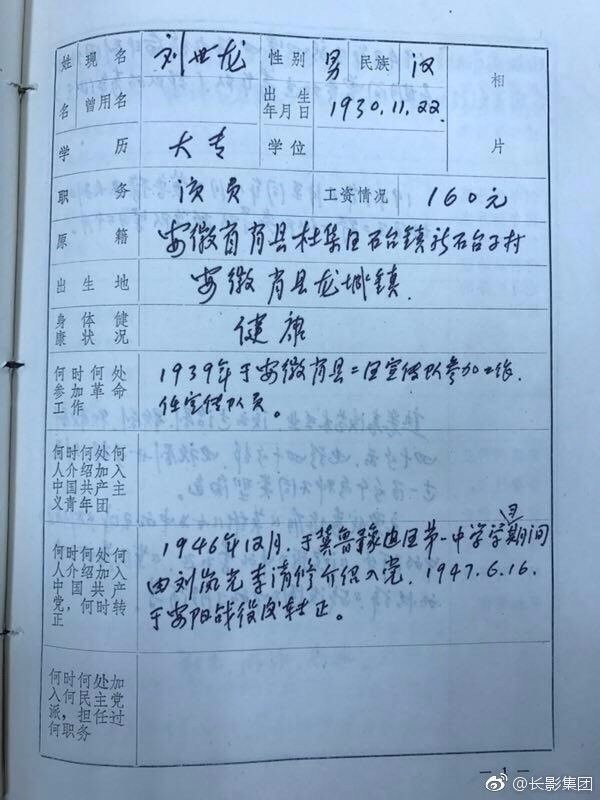 姓 现 名 刘世龙 性 别 男 民族 汉 相
名 曾用名 出 生 年月日 1930.11.22.
学 历 大专 学 位 片
职 务 演员 工资情况 160元
原 籍 安徽省萧县杜集区石台镇新石台子村
出 生 地 安徽萧县龙城镇.
身 体 健 健康
康 状 况
何 时 何 处 1939年于安徽萧县二区宣传队参加工作.
参 加 革 命 任宣传队员。
工 作
何时何处何
人介绍加入
中国共产主
义青年团
何时何处何 1946年12月,于冀鲁豫边区第一中学学习期间
人介绍加入 由刘岚光李清修介绍入党,1947.6.16.
中 国 共 产 于安阳战役后转正。
党,何时转
正
何时何处加
入何民主党
派,担任过
何职务
— 1 —
@长影集团